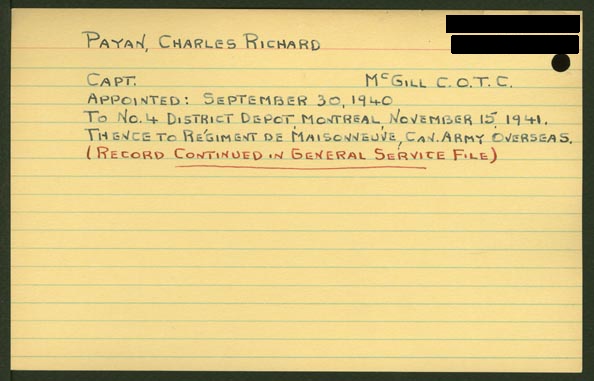 PAYAN, CHARLES RICHARD
CAPT. McGILL C.O.T.C.
APPOINTED: SEPTEMBER 30, 1940
TO NO. 4 DISTRICT DEPOT, MONTREAL, NOVEMBER 15, 1941.
THENCE TO RÉGIMENT DE MAISONNEUVE, CAN. ARMY OVERSEAS.
(RECORD CONTINUED IN GENERAL SERVICE FILE)